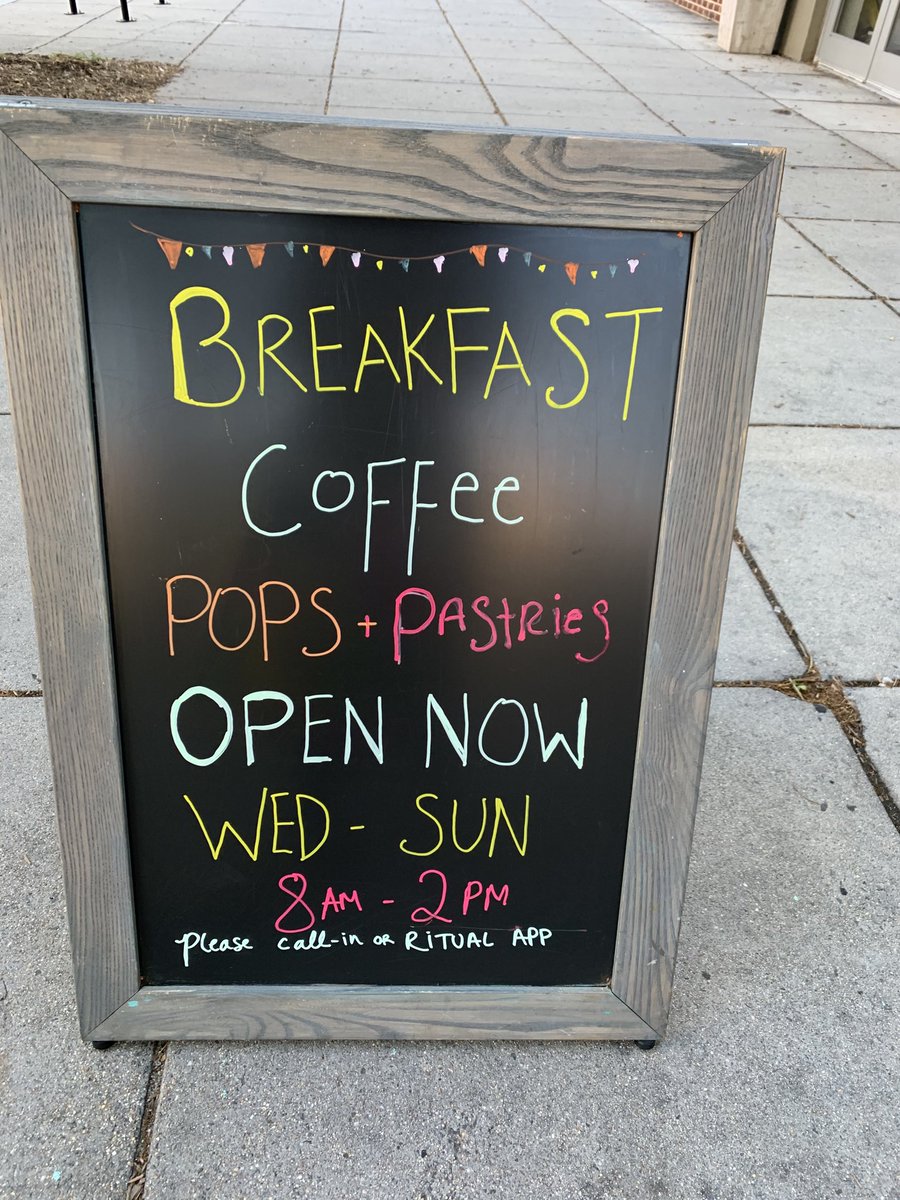 BREAKFAST
Coffee
POPS + PAStRies
OPEN NOW
WED - SUN
8AM - 2PM
please call-in OR RiTUAL APP